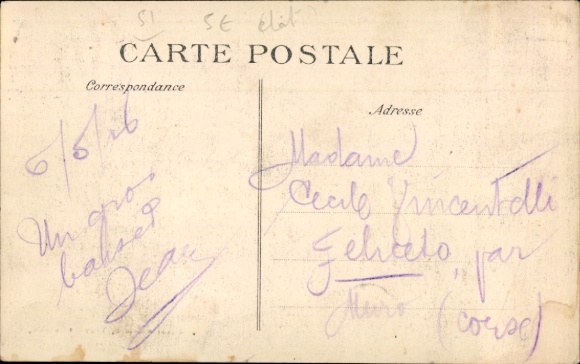 5E état
CARTE POSTALE
Correspondance
Adresse
6/5/26
Un gros
baiser
Jean
Madame
Cecile Vincentelli
Feliceto, par
Muro (Corse)